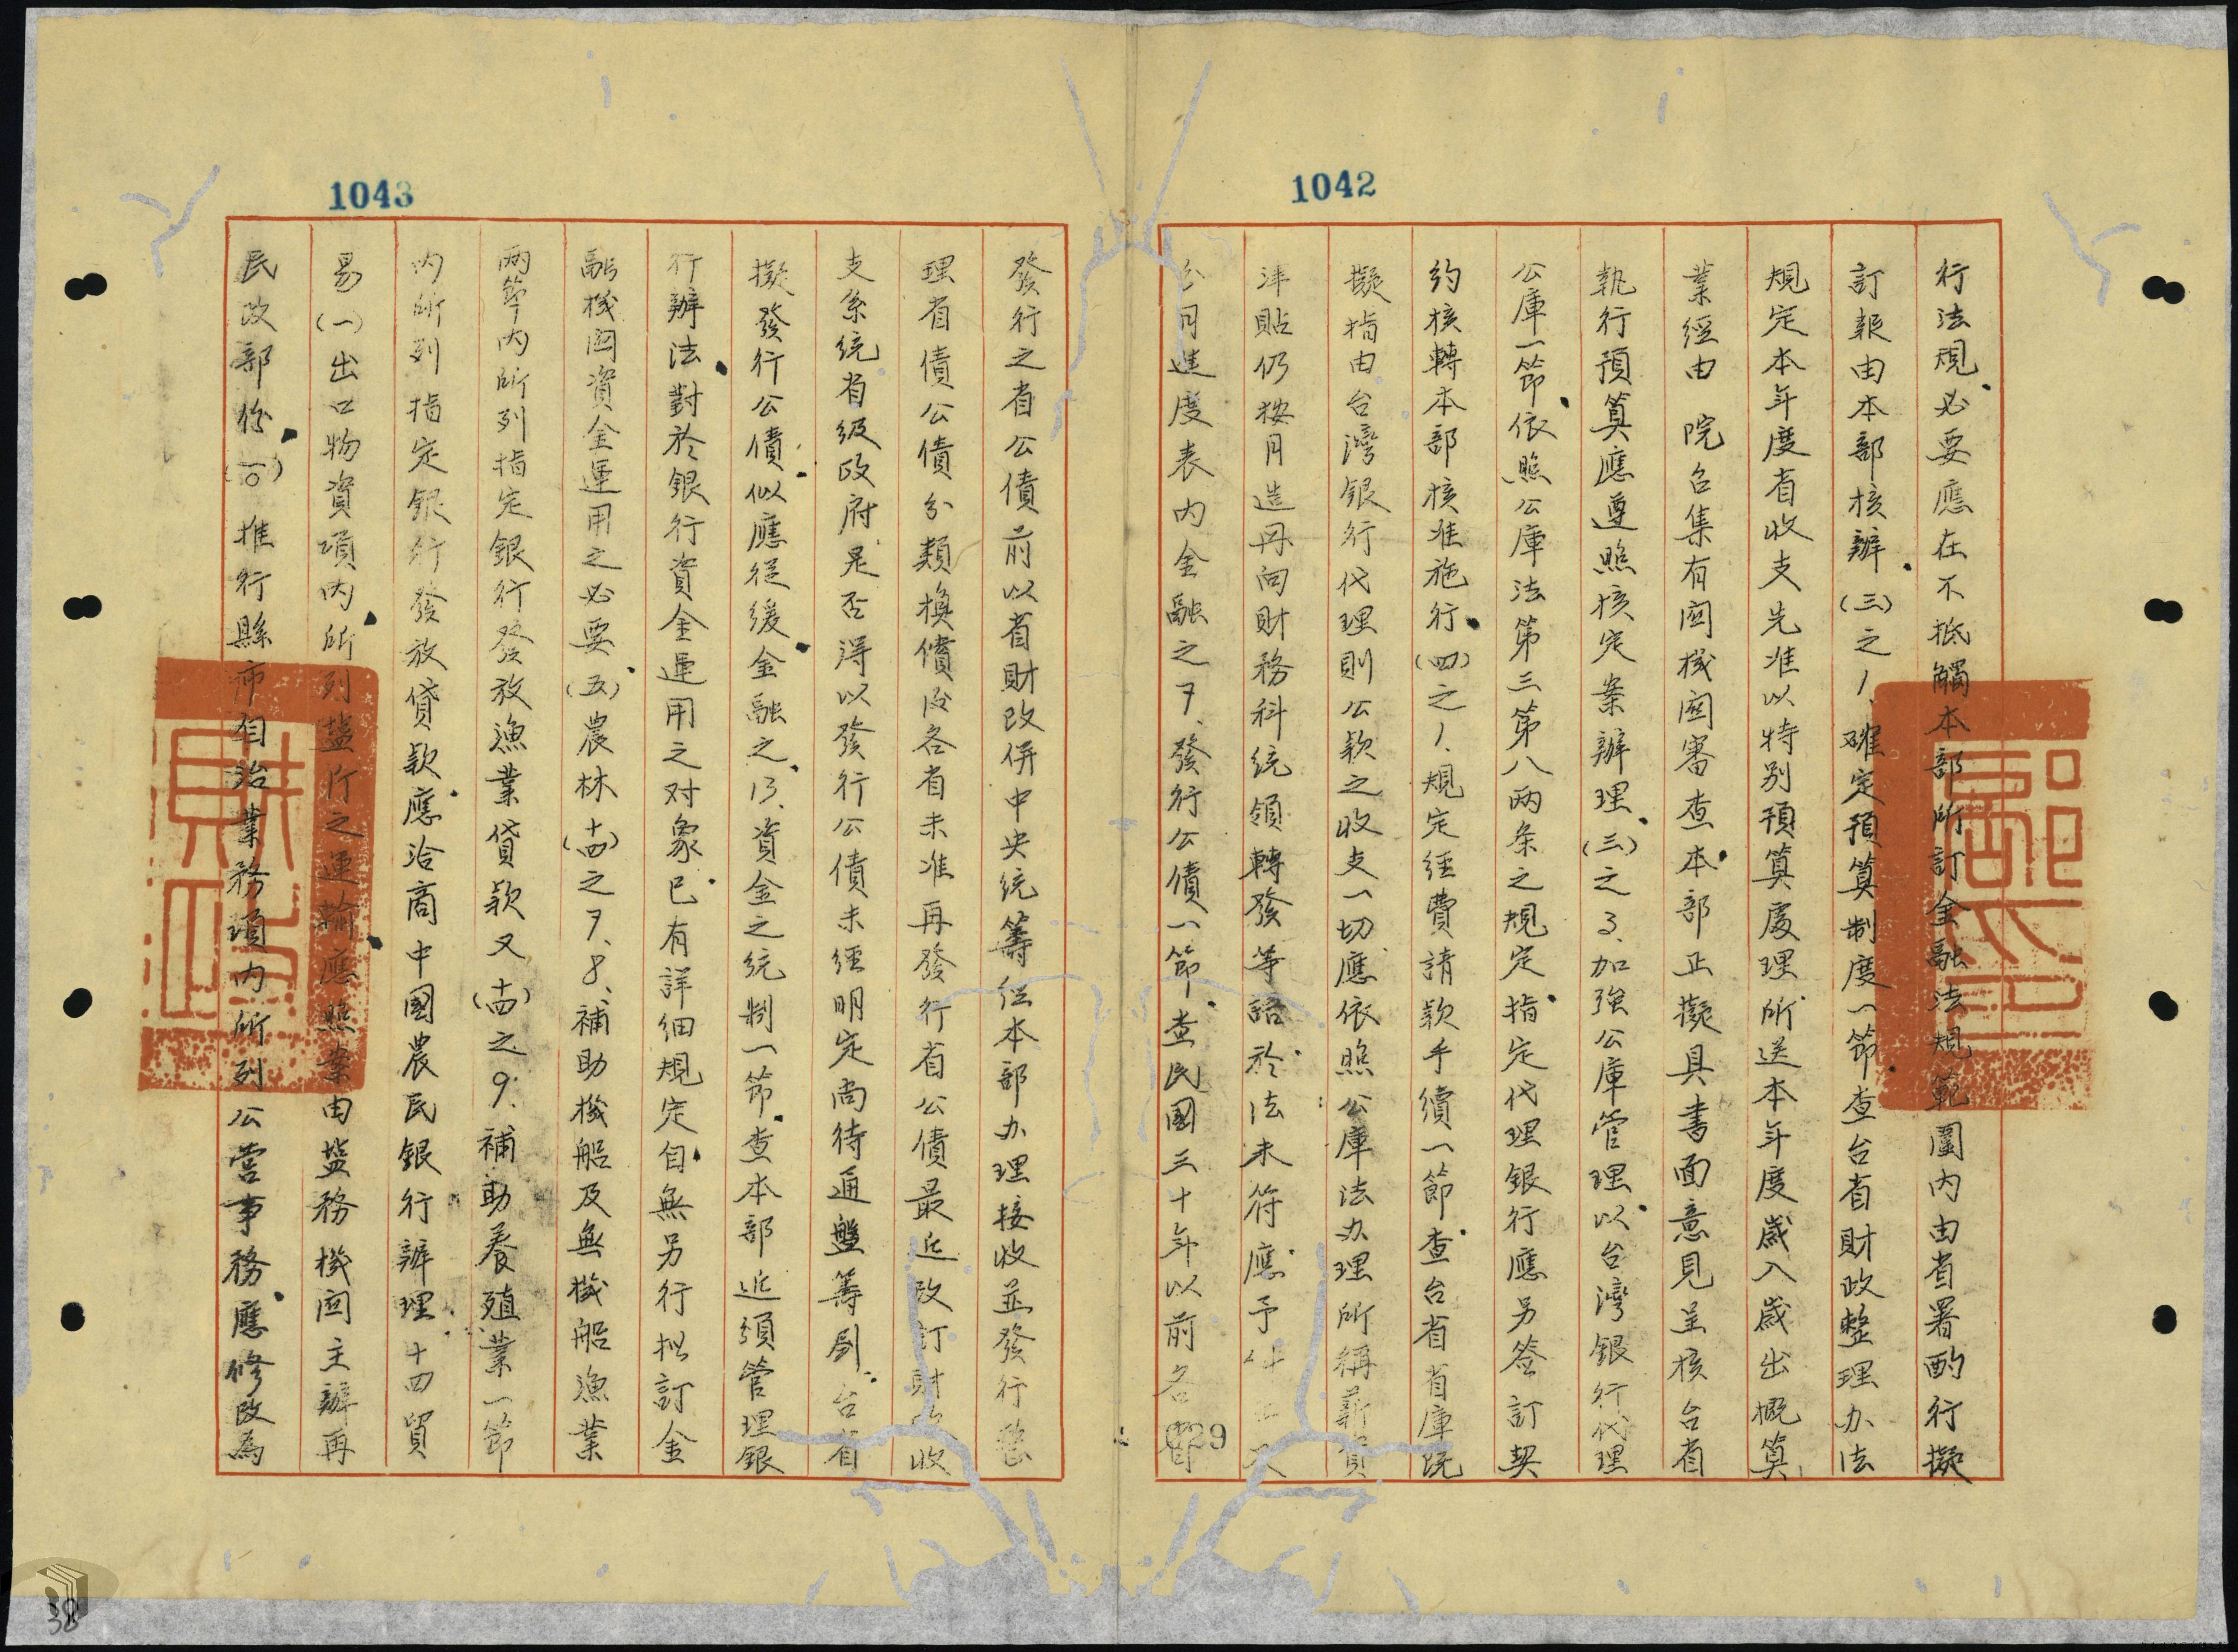 1042
行法規、必要應在不抵觸本部所訂金融法規範圍內由省署酌行擬
訂報由本部核辦、(三)之1、確定預算制度一節查台省財政整理办法
規定本年度省收支先准以特別預算處理、所送本年度歲入歲出概算
業經由　院召集有関機関審查、本部正擬具書面意見呈核台省
執行預算應遵照核定案辦理、(三)之3、加強公庫管理、以台灣銀行代理
公庫一節、依照公庫法第三第八兩条之規定、指定代理銀行應另簽訂契
約核轉本部核准施行、(四)之1、規定經費請款手續一節、查台省省庫既
擬指由台灣銀行代理則公款之收支一切應依照公庫法办理所稱薪資
津貼仍按月造冊向財務科統領轉發等語、於法未符、應予
月進度表內金融之7、發行公債一節、查民國三十年以前各省
029
1043
發行之省公債前以省財政併中央統籌經本部办理接收並發行整
理省債公債分類換償後各省未准再發行省公債最近改訂財收
支系統省級政府是否得以發行公債未經明定尚待通盤籌劃、台省
擬發行公債、似應從緩、金融之13、資金之統制一節、查本部近頒管理銀
行辦法、對於銀行資金運用之对象、已有詳細規定自、無另行拟訂金
融機関資金運用之必要、(五)農林(十四)之7、8、補助機船及無機船漁業
兩節內所列指定銀行發放漁業貸款又(十四)之9、補助養殖業一節
內所列指定銀行發放貸款、應洽商中國農民銀行辦理、十四貿
易(一)出口物資項內、所列鹽斤之運輸、應照案由鹽務機関主辦再
民政部份、(一〇)推行縣市自治業務項內所列公營事務、應修改為
38